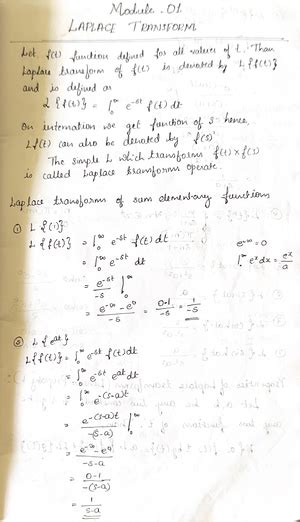 Module - 01
LAPLACE TRANSFORM
Let f(t) function defined for all values of t. Than
Laplace transform of f(t) is denoted by L{f(t)}
and is defined as
L{f(t)} = ∫₀^∞ e^-st f(t) dt
On internation we get function of s hence,
Lf(t) can also be denoted by f(s)
The simple L which transforms f(t) x f(s)
is called Laplace transforms operate.
Laplace transforms of sam elementary functions
① L{f(1)}
L{f(t)} = ∫₀^∞ e^-st f(t) dt e^-∞ = 0
= ∫₀^∞ e^-st dt ∫₀^∞ e^x dx = e^x/a
= e^-st/-s |₀^∞
= e^-∞ - e^0/-s = 0-1/-s = 1/-s
② L{e^at}
L{f(t)} = ∫₀^∞ e^-st f(t) dt
= ∫₀^∞ e^-st e^at dt
= ∫₀^∞ e^-(s-a)t
= e^-(s-a)t/-(s-a) |₀^∞
= e^-∞ - e^0/-s-a
= 0-1/-(s-a)
= 1/s-a